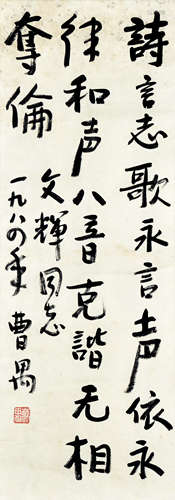 詩言志歌永言声依永
律和声八音克諧无相
奪倫
文輝同志
一九八四年 曹禺